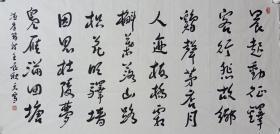 晨起動征鐸
客行悲故鄉
鷄聲茅店月
人迹板橋霜
槲葉落山路
枳花明驛墻
因思杜陵夢
鳧雁滿回塘